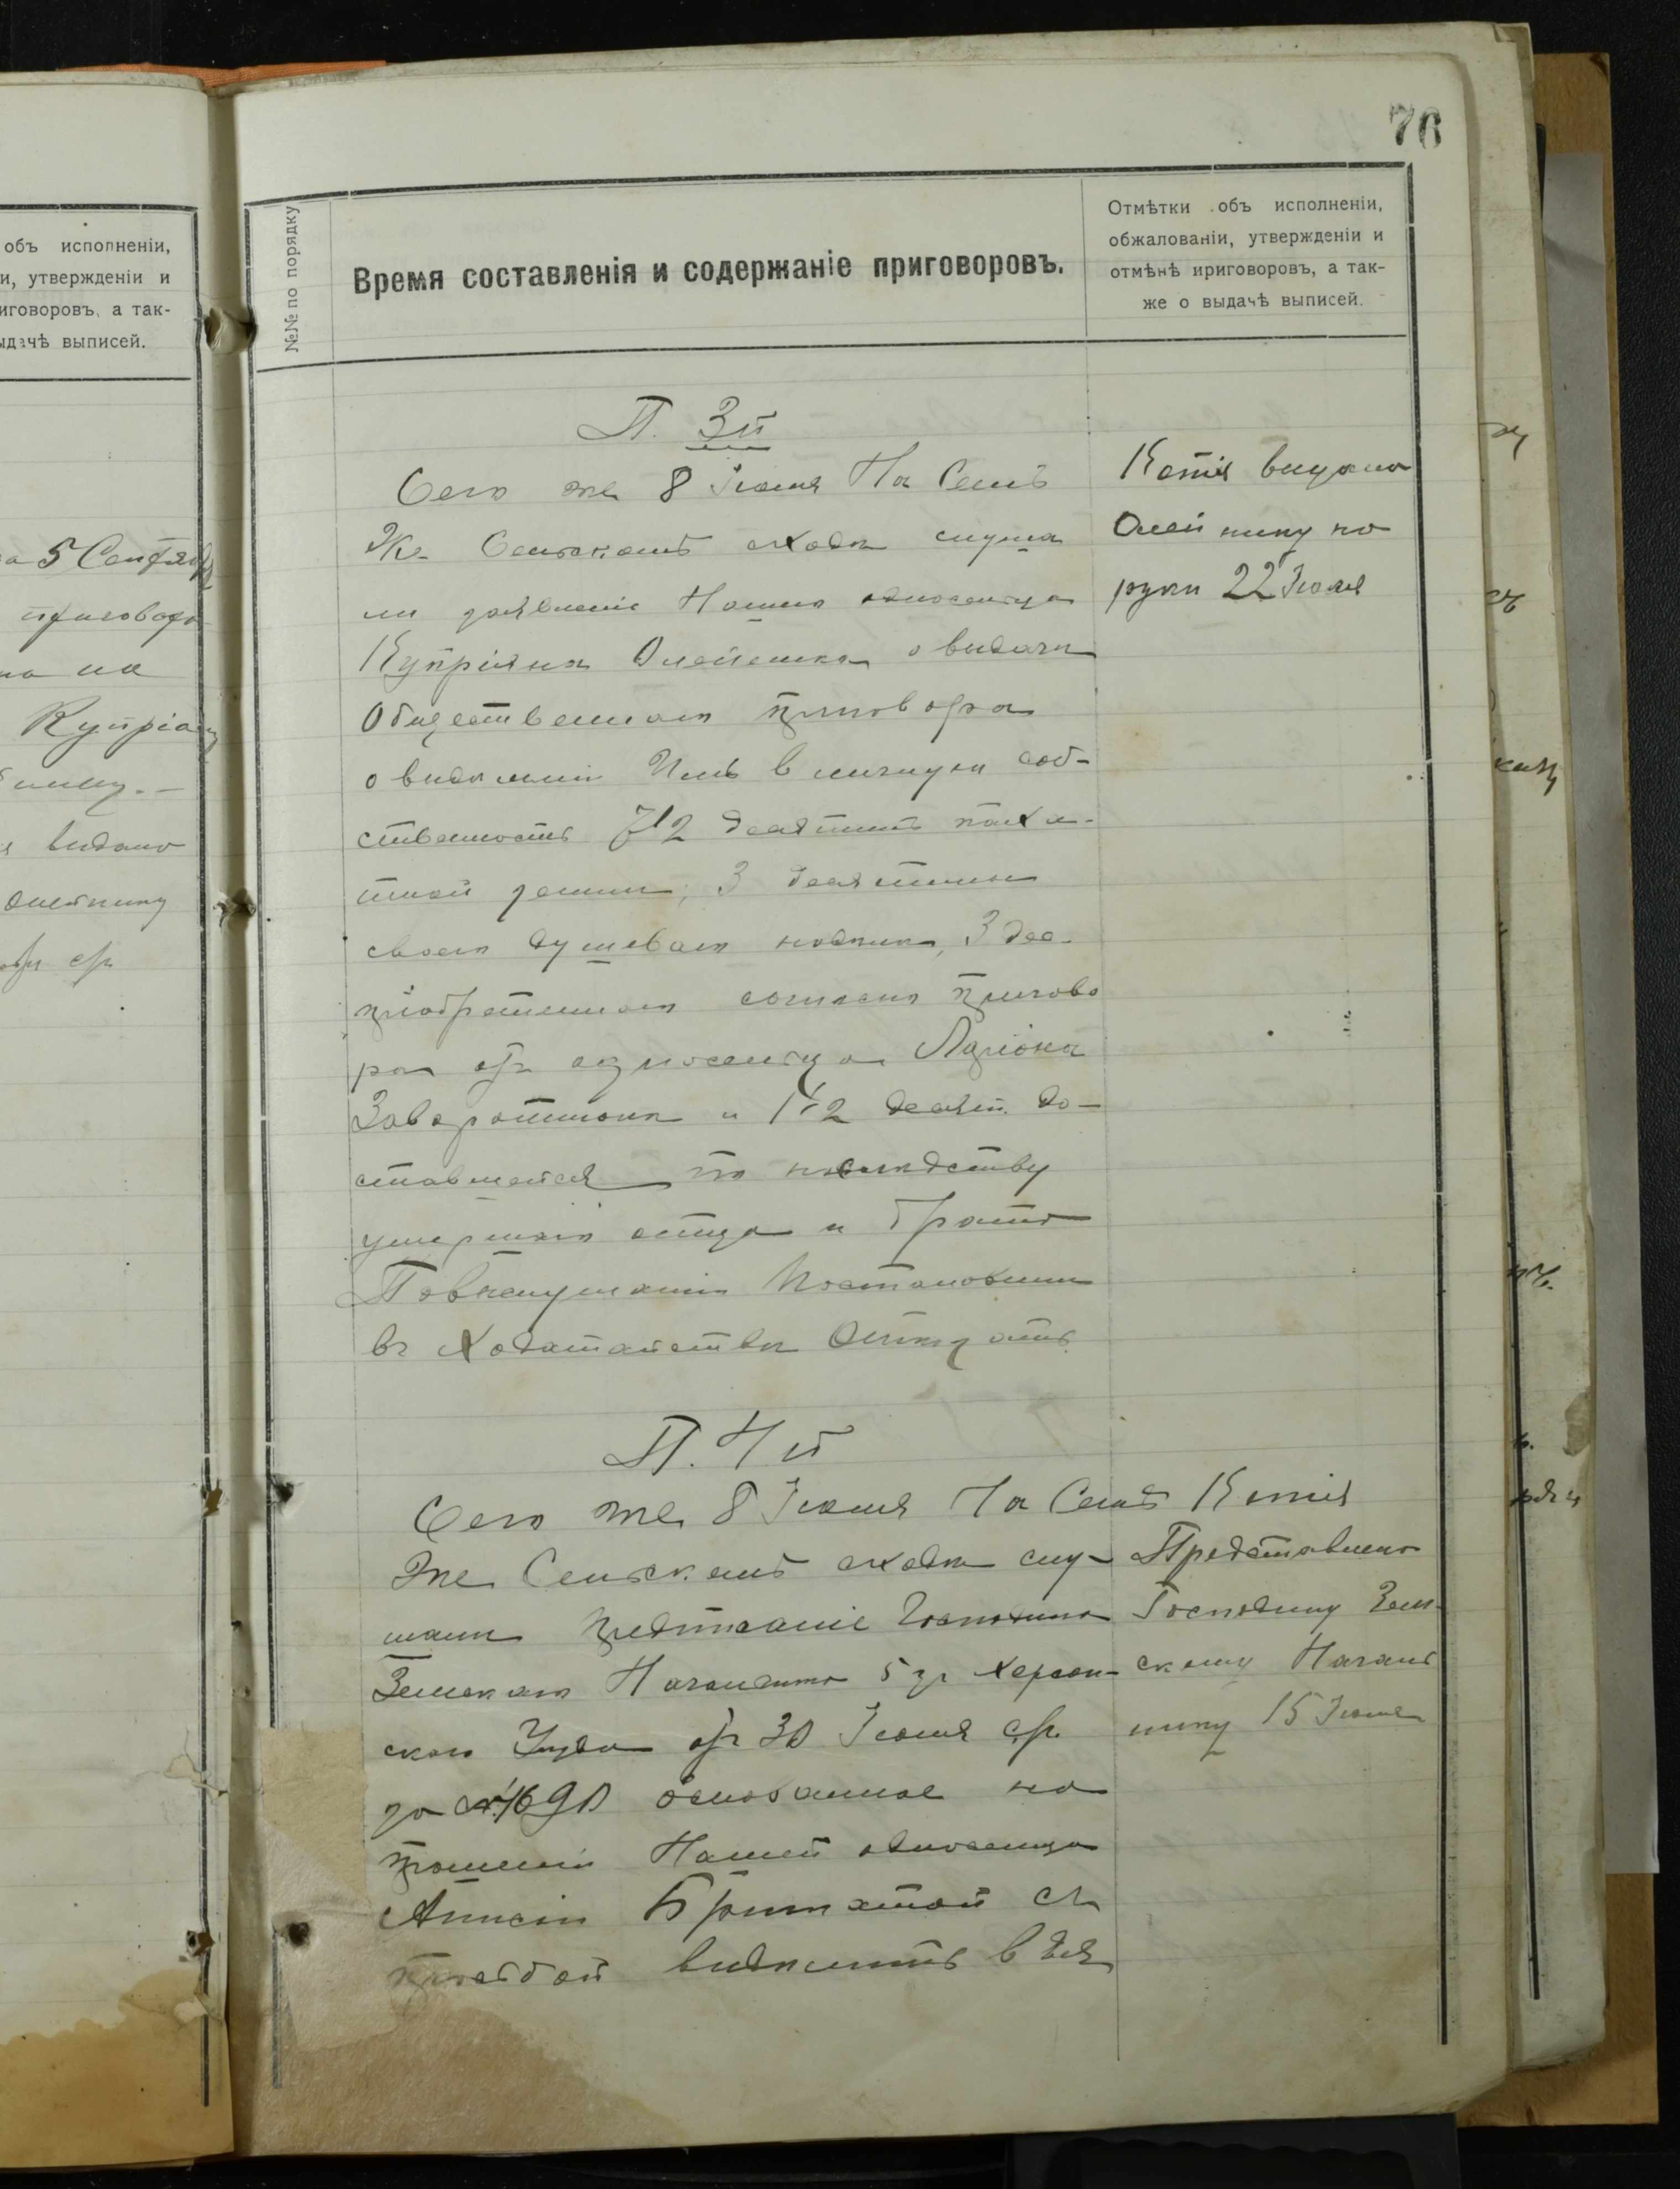 объ исполненіи,
и, утвержденіи и
иговоровъ, а так-
ыдачѣ выписей.
а 5 Сентяб
приговора
на на
Купріа
видано
76
№№ по порядку
Время составленія и содержаніе приговоровъ.
Отмѣтки объ исполненіи,
обжалованіи, утвержденіи и
отмѣнѣ ириговоровъ, а так-
же о выдачѣ выписей.
П. 3й
Сего же 8 Іюля На Семъ
Же Сельскомъ сходи слуша
ли заявленіе Нашего односельца
Купріяна Олейника о видачи
Общественнаго приговора
о видиленіи Имъ в личную соб-
ственность 7½ десятинъ паха-
тной земли, 3 десятины
своего душеваго надила, 3 дес.
пріобретеннаго согласно пригово
ра от односельца Ларіона
Заворотнюка и 1½ десят. до-
ставшейся по наслидству
умершаго отца и брата
Повислушаніи Постановили
въ Ходатайстви Отказать
Копія видана
Олейнику на
руки 22 Іюля
П. 4й
Сего же 8 Іюля На Семъ
Же Сельскомъ сходи слу-
шали предписаніе Господина
Земскаго Начальника 5 уч Херсон-
скаго Уизда от 30 Іюня с/г.
за №1690 основанное на
прошеніи Нашей односельца
Аннсіи с
прозбой видилить в Ея
Копія
Представлена
Господину Зем-
скому Началь
нику 15 Іюля